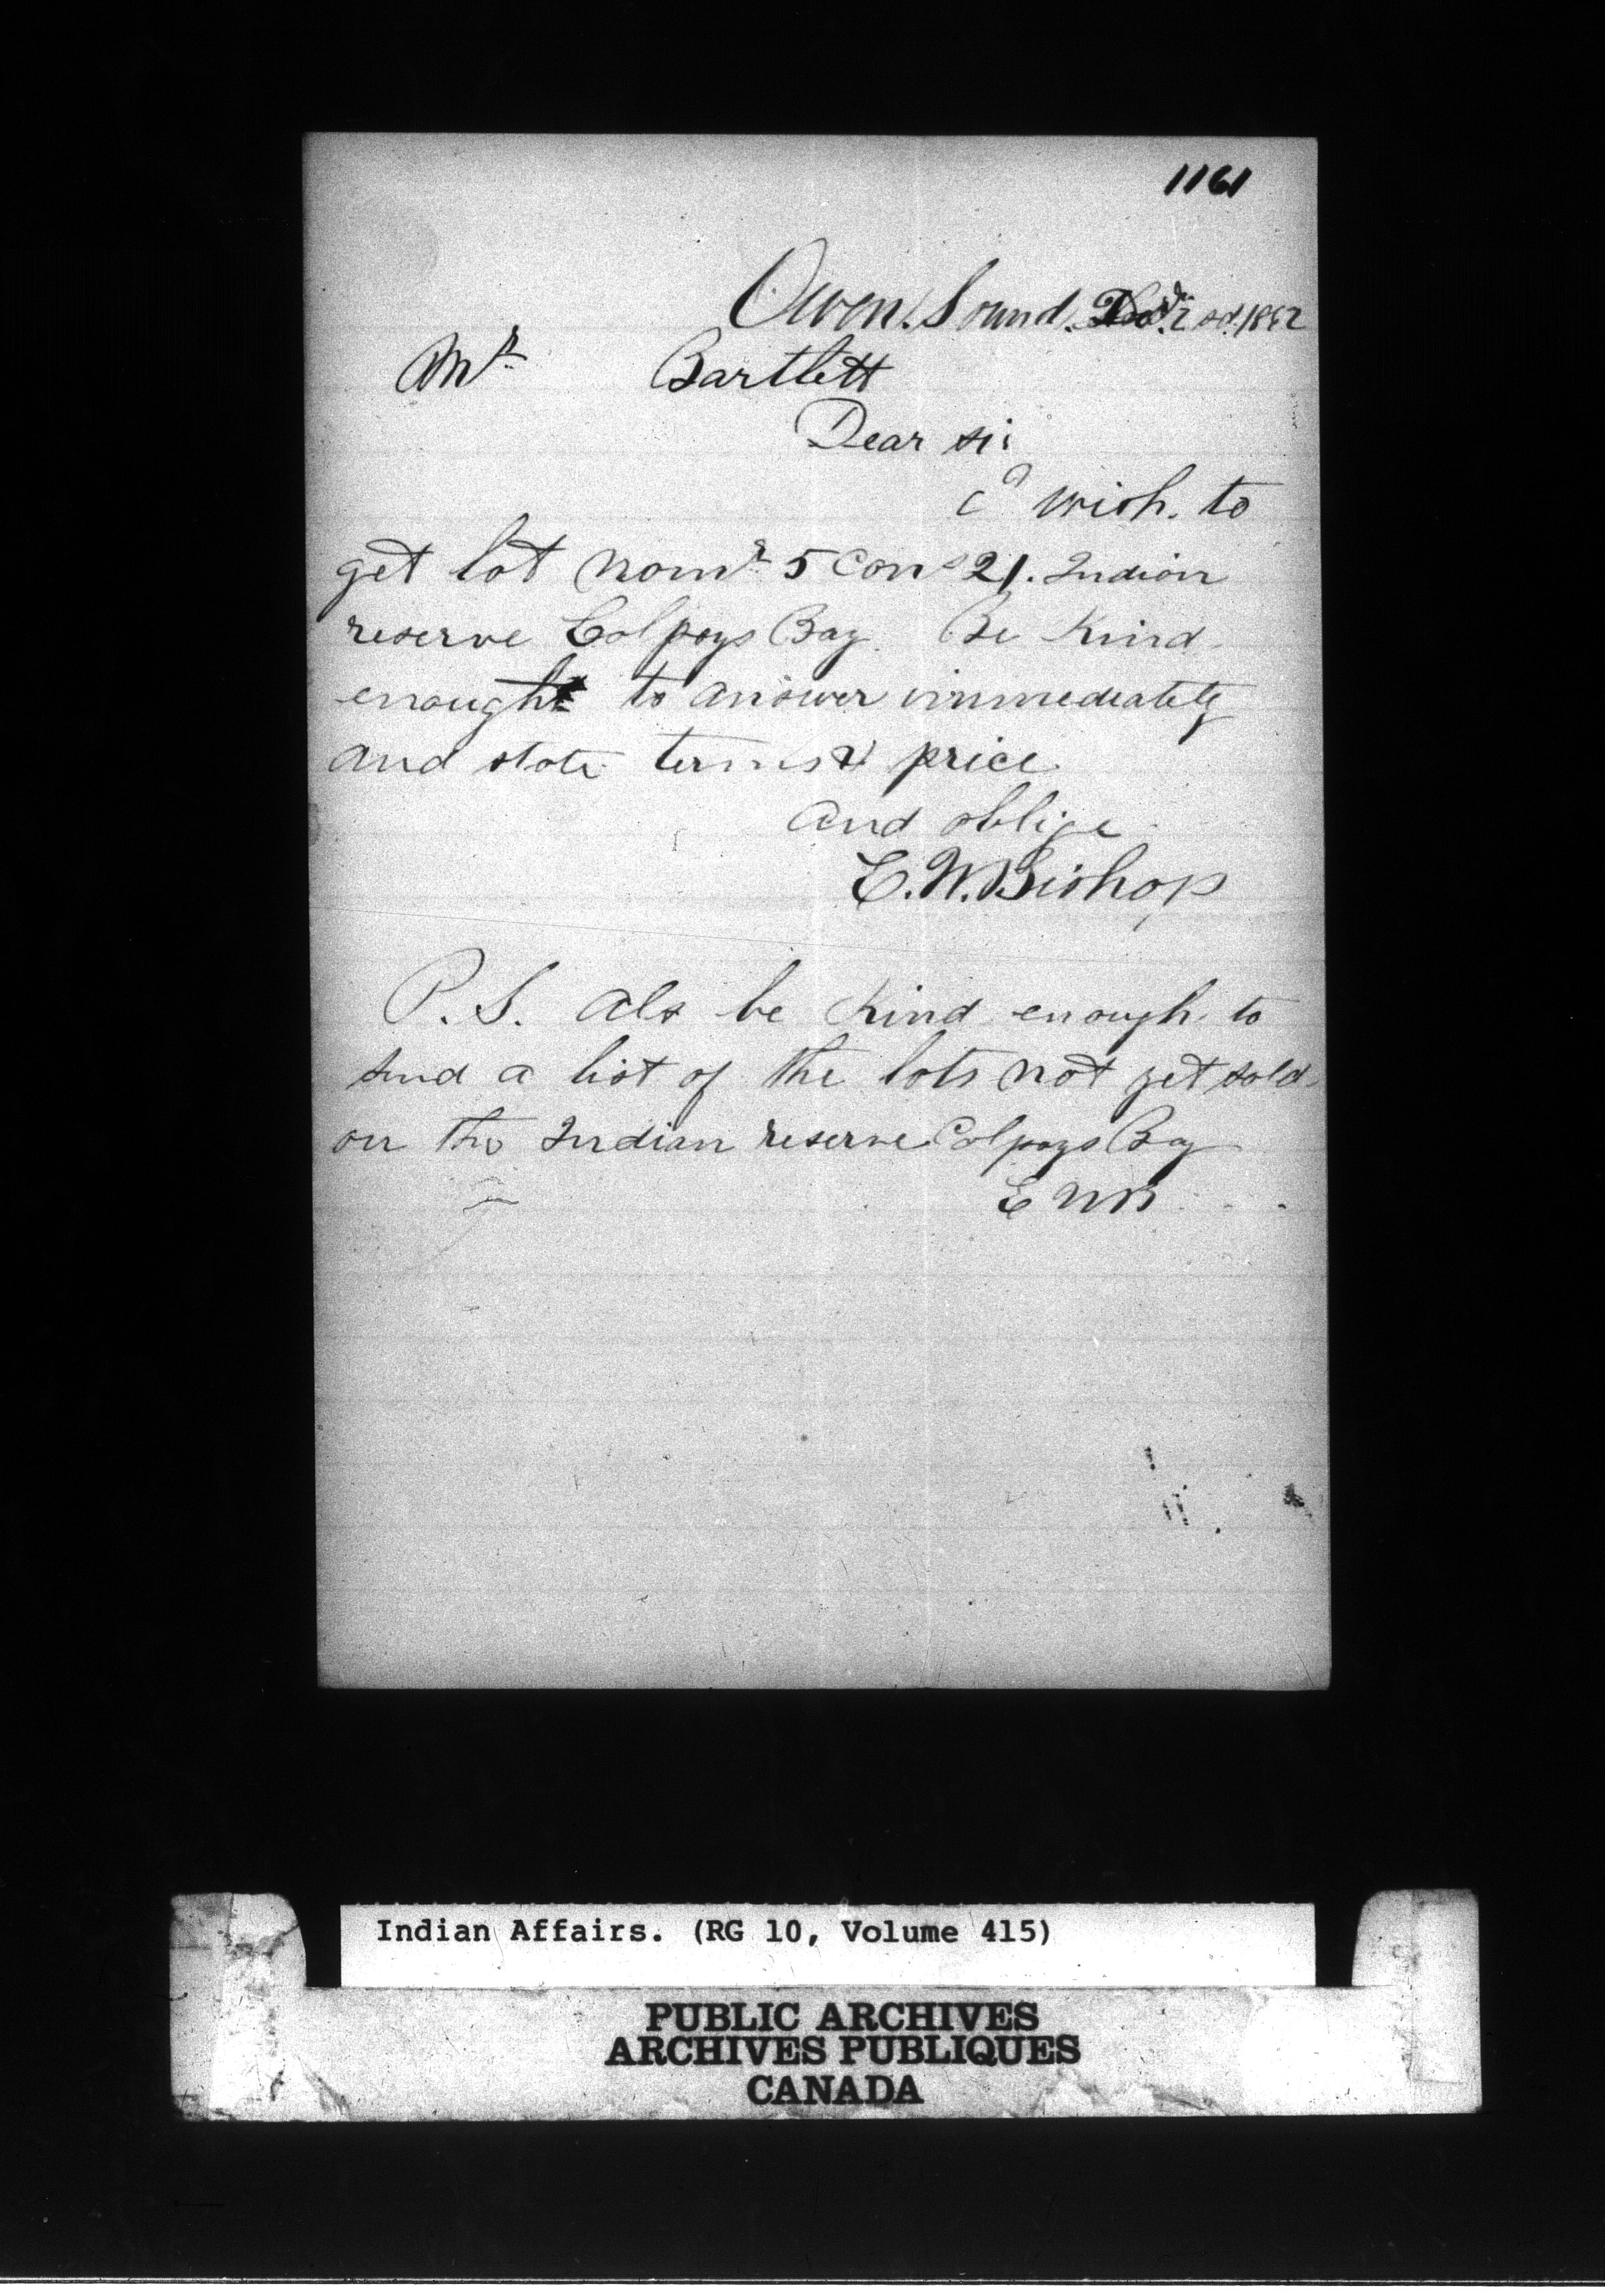 1161
Owen Sound. 2nd. 1862
Mr Bartlett
Dear sir
I wish. to
get lot nomr 5 Cons 21. Indian
reserve Colpoys Bay. Be Kind
enough to answer immediately
and state terms & price
and oblige
E. W. Bishop
P. S. also be Kind enough to
send a list of the lots not yet sold
on the Indian reserve Colpoys Bay
E W B
Indian Affairs. (RG 10, Volume 415)
PUBLIC ARCHIVES
ARCHIVES PUBLIQUES
CANADA